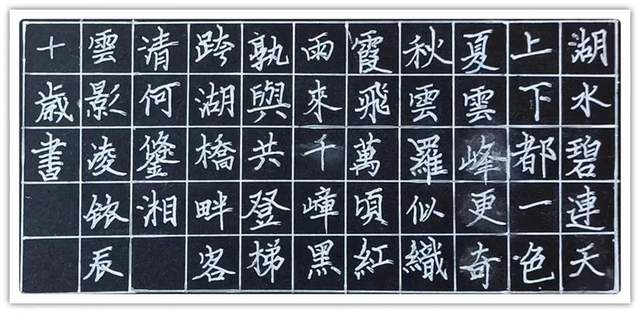 湖水碧連天
上下都一色
夏雲峰更奇
秋雲羅似織
霞飛萬頃紅
雨來千嶂黑
孰與共登梯
跨湖橋畔客
清何湘
雲影凌辰
十歲書